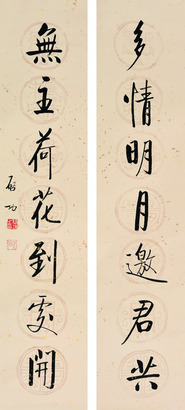 多情明月邀君共
無主荷花到處開
啟功